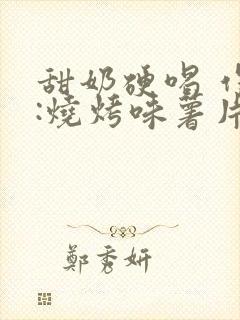 甜奶硬唱
:燒烤味薯片
鄭秀妍